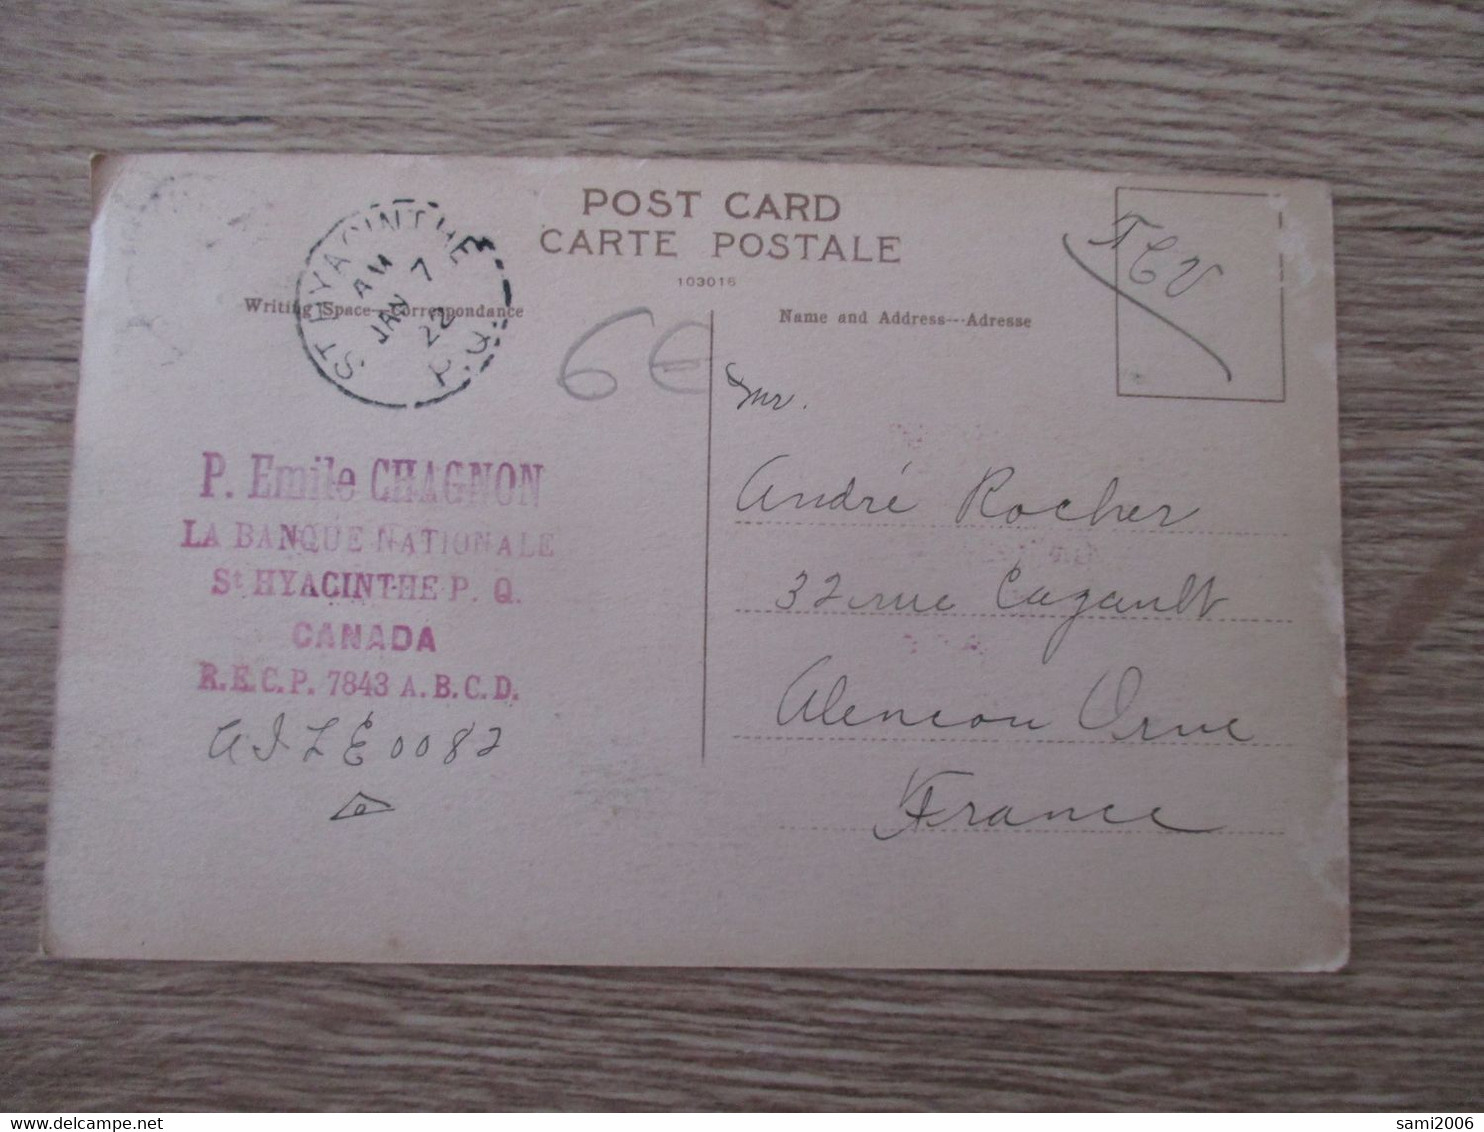 POST CARD
CARTE POSTALE
103016
Writing Space---Correspondance
Name and Address---Adresse
ST HYACINTHE P.Q.
AM 7
JAN 22
TCV
6€
P. Emile CHAGNON
LA BANQUE NATIONALE
St HYACINTHE P. Q.
CANADA
R.E.C.P. 7843 A.B.C.D.
AILE 0082
Mr.
André Rocher
32 rue Cazault
Alencon Orne
France
delcampe.net
sami2006